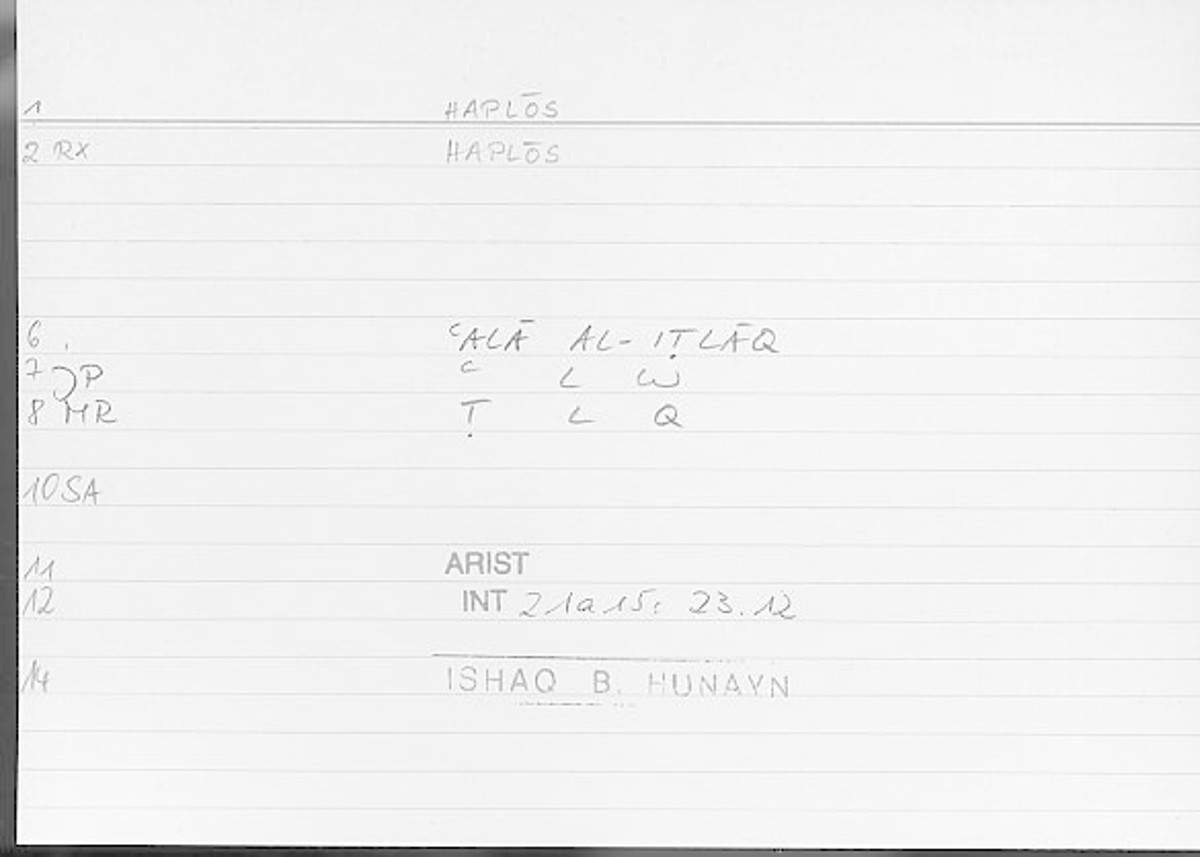 1 HAPLŌS
2 RX HAPLŌS
6 . ʿALĀ AL-IṬLĀQ
7 P ʿ L W
8 MR Ṭ L Q
10 SA
11 ARIST
12 INT 21a15: 23.12
14 ISHAQ B. HUNAYN